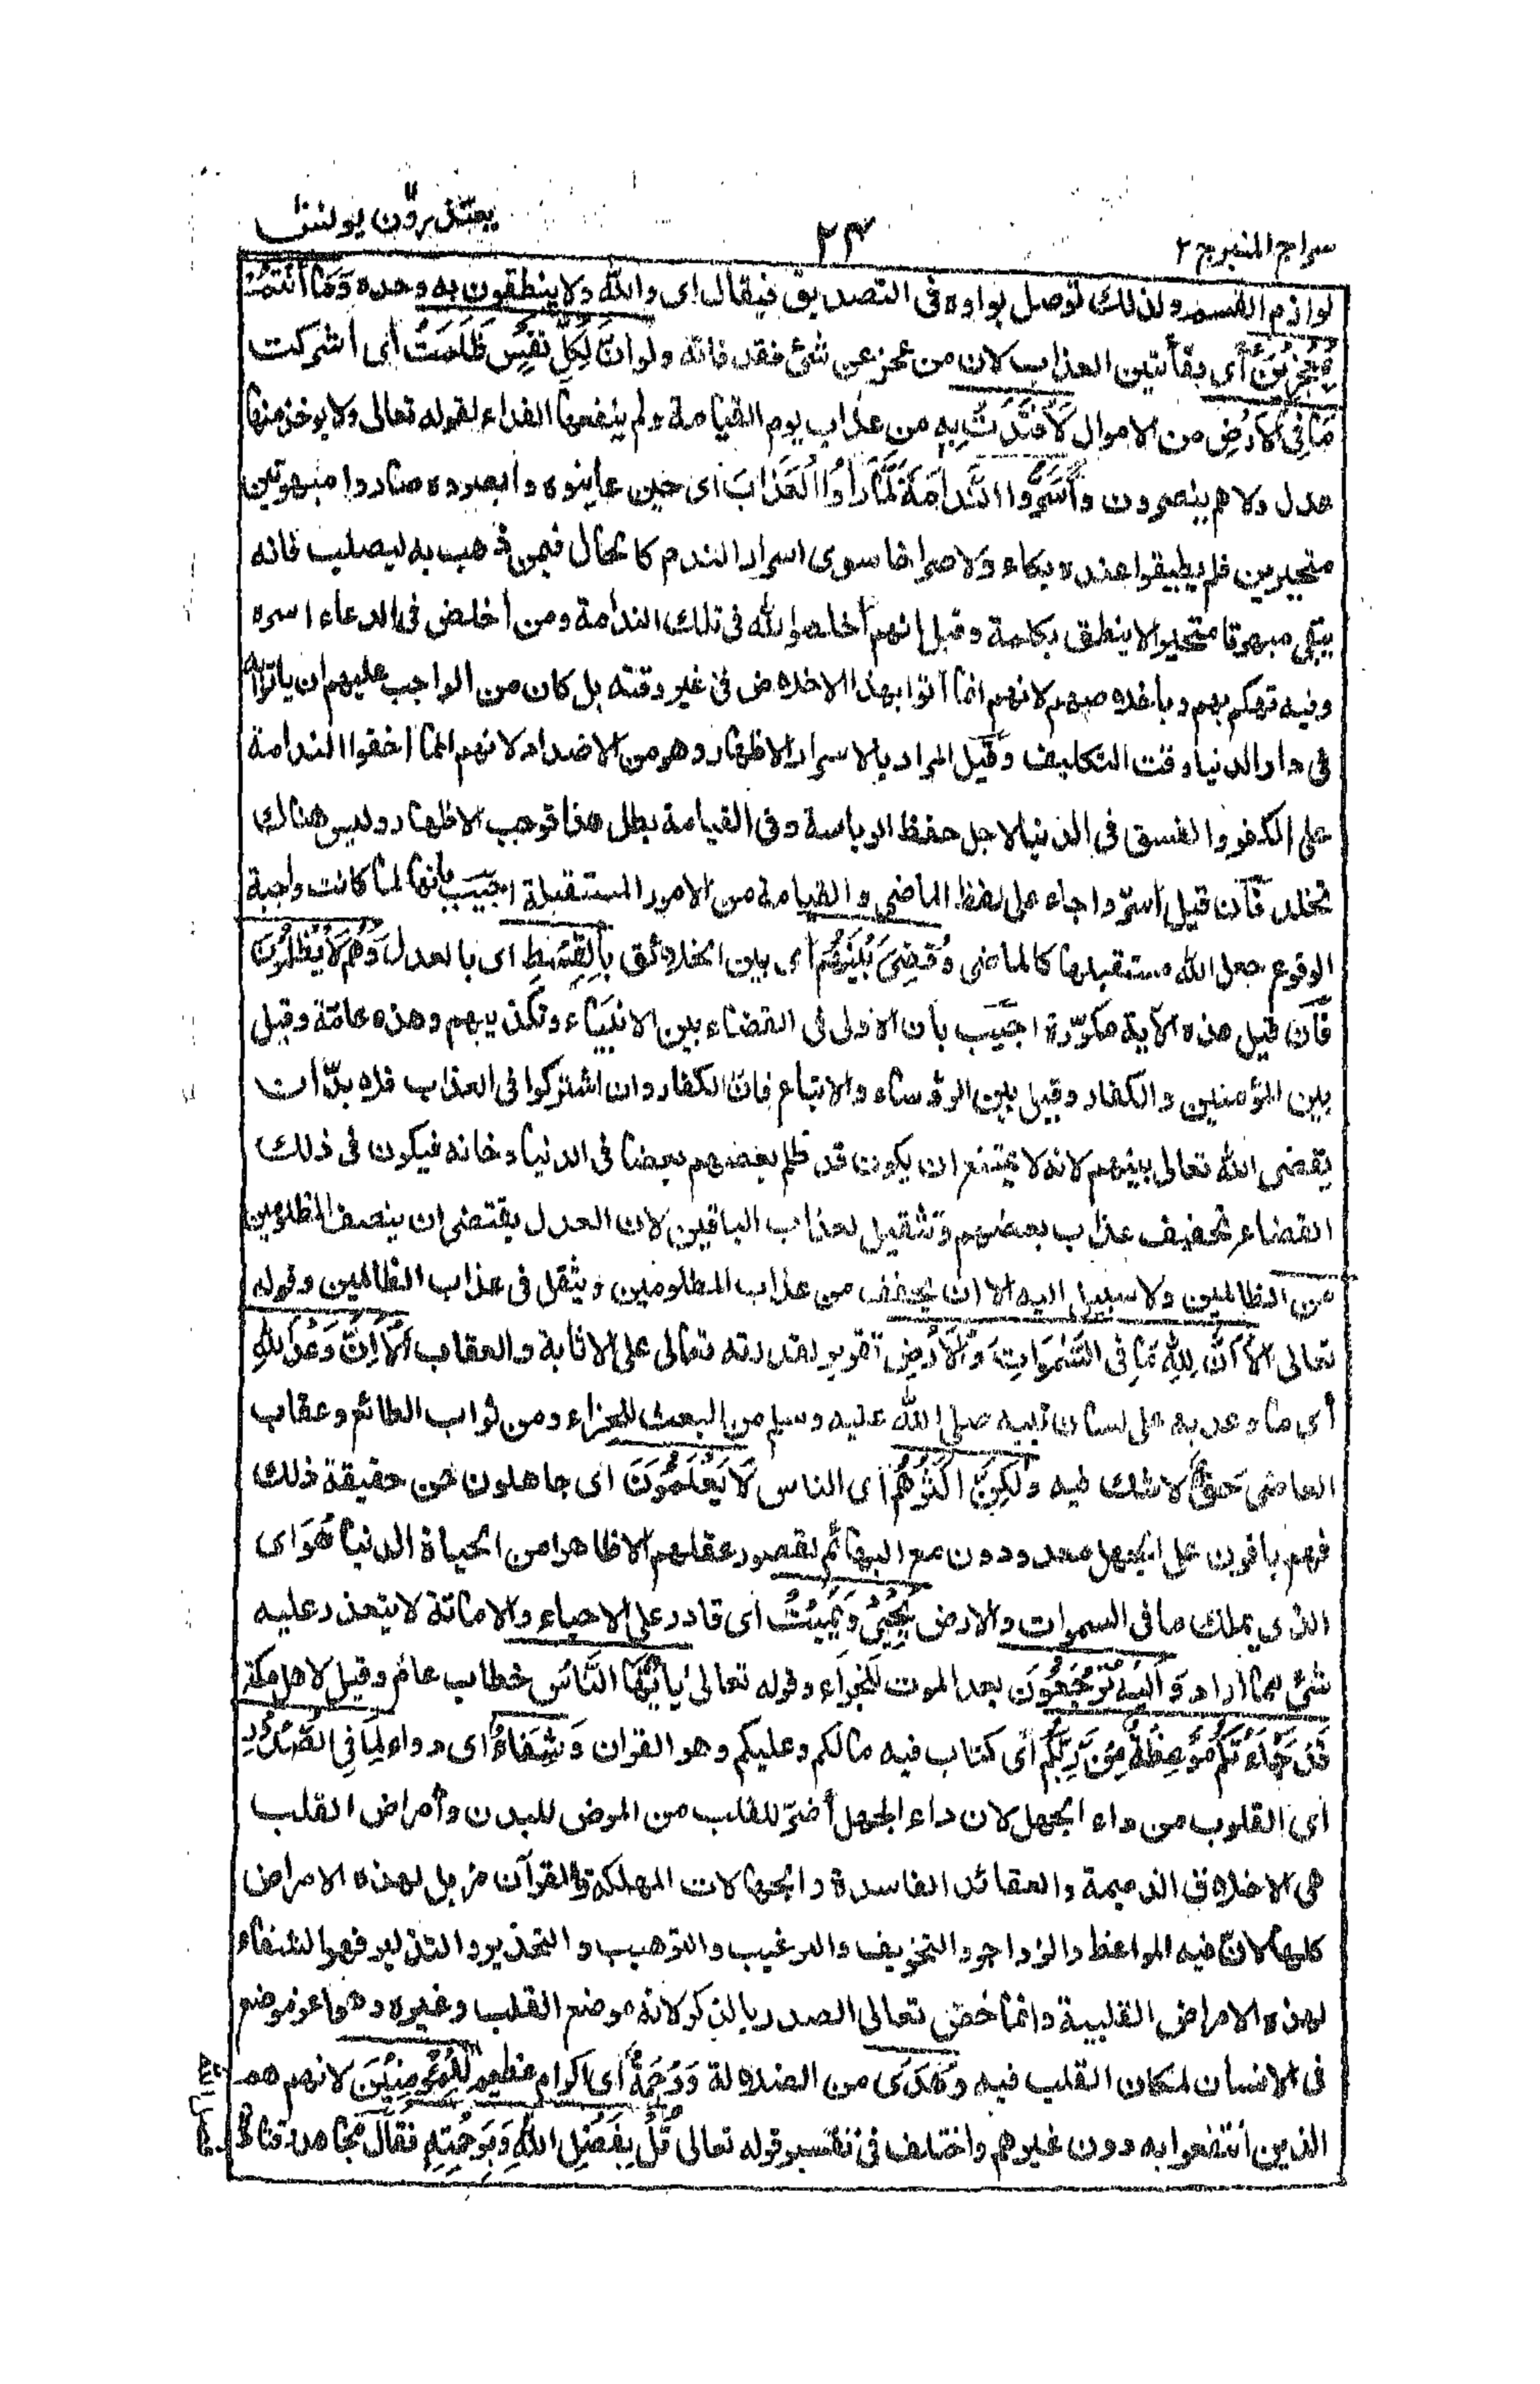 سراج المنير ج ٢
٢٤
يعتذرون ١١ يونس
لوازم القسم ولذلك توصل بواوه في التصديق فيقال اي والله ولا ينطقون به وحده وَمَا أَنْتُمْ
بِمُعْجِزِينَ أي بفائتين العذاب لان من عجز عن شئ فقد فاته ولو أنّ لِكُلِّ نَفْسٍ ظَلَمَتْ أى أشركت
مَا فِي الْأَرْضِ من الاموال لَافْتَدَتْ بِهِ من عذاب يوم القيامة ولم ينفعها الفداء لقوله تعالى ولا يوخذ منها
عدل ولا هم ينصرون وَأَسَرُّوا النَّدَامَةَ لَمَّا رَأَوُا الْعَذَابَ اى حين عاينوه وأبصروه صاروا مبهوتين
متحيرين فلم يطيقوا عنده بكاء ولا صراخا سوى اسرار الندم كالحال فيمن ذهب به ليصلب فانه
يبقى مبهوتا متحيرا لا ينطق بكلمة وقيل إنهم أخلصوا لله في تلك الندامة ومن أخلص في الدعاء اسره
وفيه تهكم بهم وباخلاصهم لانهم انما أتوا بهذا الاخلاص في غير وقته بل كان من الواجب عليهم ان ياتوا به
في دار الدنيا وقت التكليف وقيل المراد بالاسرار الاظهار وهو من الاضداد لانهم انما اخفوا الندامة
على الكفر والفسق في الدنيا لاجل حفظ الرياسة وفى القيامة بطل هذا فوجب الاظهار وليس هناك
تجلد فان قيل أسرّوا جاء على لفظ الماضي والقيامة من الامور المستقبلة اجيب بأنها لما كانت واجبة
الوقوع جعل الله مستقبلها كالماضى وَقُضِيَ بَيْنَهُمْ أى بين الخلائق بِالْقِسْطِ اى بالعدل وَهُمْ لَا يُظْلَمُونَ
فان قيل هذه الآية مكرّرة اجيب بأن الاولى في القضاء بين الانبياء وتكذيبهم وهذه عامّة وقيل
بين المؤمنين والكفار وقيل بين الرؤساء والاتباع فانّ الكفار وان اشتركوا في العذاب فلا بدّ أن
يقضى الله تعالى بينهم لانه لا يمتنع ان يكون قد ظلم بعضهم بعضا في الدنيا وخانه فيكون في ذلك
القضاء تخفيف عذاب بعضهم وتثقيل لعذاب الباقين لان العدل يقتضى ان ينصف المظلومين
من الظالمين ولا سبيل اليه الا ان يخفف من عذاب المظلومين ويثقل في عذاب الظالمين وقوله
تعالى أَلَا إِنَّ لِلَّهِ مَا فِي السَّمٰوَاتِ وَالْأَرْضِ تقرير لقدرته تعالى على الاثابة والعقاب أَلَا إِنَّ وَعْدَ اللَّهِ
أى ما وعد به على لسان نبيه صلى الله عليه وسلم من البعث للجزاء ومن ثواب الطائع وعقاب
العاصى حَقٌّ لا شك فيه وَلَكِنَّ أَكْثَرَهُمْ أى الناس لَا يَعْلَمُونَ اى جاهلون عن حقيقة ذلك
فهم باقون على الجهل معدودون مع البهائم لقصور عقلهم الا ظاهرا من الحياة الدنيا هُوَ اى
الذي يملك ما في السموات والارض يُحْيِي وَيُمِيتُ اى قادر على الاحياء والاماتة لا يتعذر عليه
شئ مما أراد وَإِلَيْهِ تُرْجَعُونَ بعد الموت للجزاء وقوله تعالى يَا أَيُّهَا النَّاسُ خطاب عام وقيل لاهل مكة
قَدْ جَاءَتْكُمْ مَوْعِظَةٌ مِنْ رَبِّكُمْ أى كتاب فيه ما لكم وعليكم وهو القران وَشِفَاءٌ اى دواء لِمَا فِي الصُّدُورِ
أى القلوب من داء الجهل لان داء الجهل أضرّ للقلب من المرض للبدن وأمراض القلب
هي الاخلاق الذميمة والعقائد الفاسدة والجهالات المهلكة والقرآن مزيل لهذه الامراض
كلها لانّ فيه المواعظ والزواجر والتخويف والترغيب والترهيب والتحذير والتذكير فهو الشفاء
لهذه الامراض القلبية وانما خصّ تعالى الصدر بالذكر لانه موضع القلب وغيره وهو اعز موضع
في الانسان لمكان القلب فيه وَهُدًى من الضلالة وَرَحْمَةٌ أى اكرام عظيم لِلْمُؤْمِنِينَ لانهم هم
الذين انتفعوا به دون غيرهم واختلف في تفسير قوله تعالى قُلْ بِفَضْلِ اللَّهِ وَبِرَحْمَتِهِ فقال مجاهد وقتادة